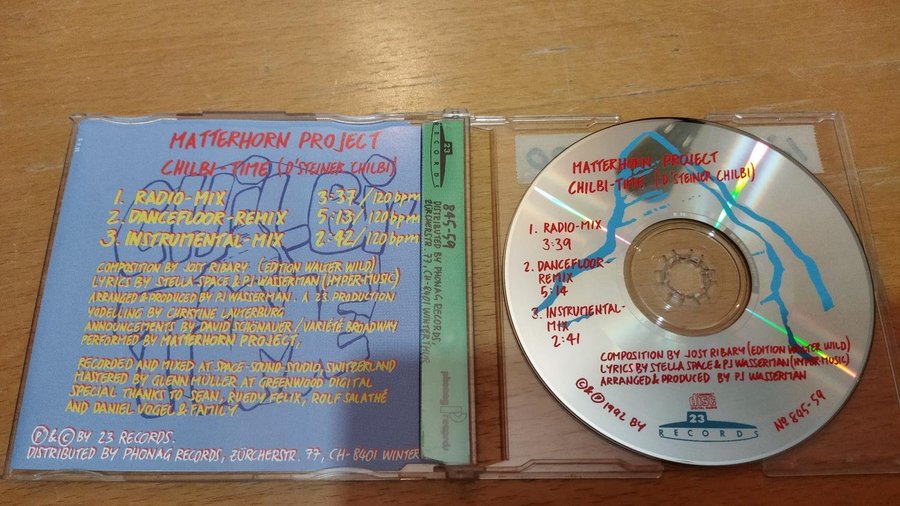 MATTERHORN PROJECT
CHILBI-TIME (D'STEINER CHILBI)
1. RADIO-MIX 3:37/120bpm
2. DANCEFLOOR-REMIX 5:13/120bpm
3. INSTRUMENTAL-MIX 2:42/120bpm
COMPOSITION BY JOST RIBARY (EDITION WALTER WILD)
LYRICS BY STELLA SPACE & PJ WASSERMAN (HYPER-MUSIC)
ARRANGED & PRODUCED BY PJ WASSERMAN. A 23 PRODUCTION
YODELLING BY CHRISTINE LAUTERBURG
ANNOUNCEMENTS BY DAVID SCHÖNAUER/VARIÉTÉ BROADWAY
PERFORMED BY MATTERHORN PROJECT,
RECORDED AND MIXED AT SPACE-SOUND-STUDIO, SWITZERLAND
MASTERED BY GLENN MULLER AT GREENWOOD DIGITAL
SPECIAL THANKS TO SEAN, RUEDY FELIX, ROLF SALATHÉ
AND DANIEL VOGEL & FAMILY
Ⓟ & © BY 23 RECORDS.
DISTRIBUTED BY PHONAG RECORDS, ZÜRCHERSTR. 77, CH-8401 WINTER
23
RECORDS
845-59
DISTRIBUTED BY PHONAG RECORDS,
ZÜRCHERSTR. 77, CH-8401 WINTERTHUR
phonag Records
MATTERHORN PROJECT
CHILBI-TIME (D'STEINER CHILBI)
1. RADIO-MIX
3:39
2. DANCEFLOOR-
REMIX
5:14
3. INSTRUMENTAL-
MIX
2:41
COMPOSITION BY JOST RIBARY (EDITION WALTER WILD)
LYRICS BY STELLA SPACE & PJ WASSERMAN (HYPER-MUSIC)
ARRANGED & PRODUCED BY PJ WASSERMAN
© & Ⓟ 1992 BY
23
RECORDS
COMPACT
disc
DIGITAL AUDIO
No 845-59